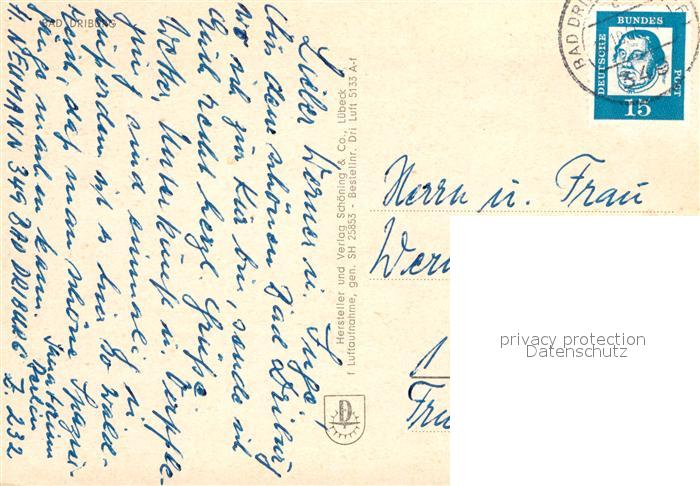 BAD DRIBURG
Lieber Werner u. Inge,
Aus dem schönen Bad Driburg
wo ich zur Kur bin, sende ich
Euch recht herzl. Grüße.
Wetter, Unterkunft u. Verpfle-
gung sind einmalig u.
außerdem ist es hier so wald-
reich, daß man schöne Spazier-
gänge machen kann.
H. NEUMANN 349 BAD DRIBURG Z. 232
Sanatorium
Berlin
Hersteller und Verlag Schöning & Co., Lübeck
f Luftaufnahme, gen. SH 25853 - Bestellnr. Dri Luft 5133 A-f
BAD DRI
DEUTSCHE
BUNDES
POST
15
Herrn u. Frau
Wern
1
privacy protection
Datenschutz